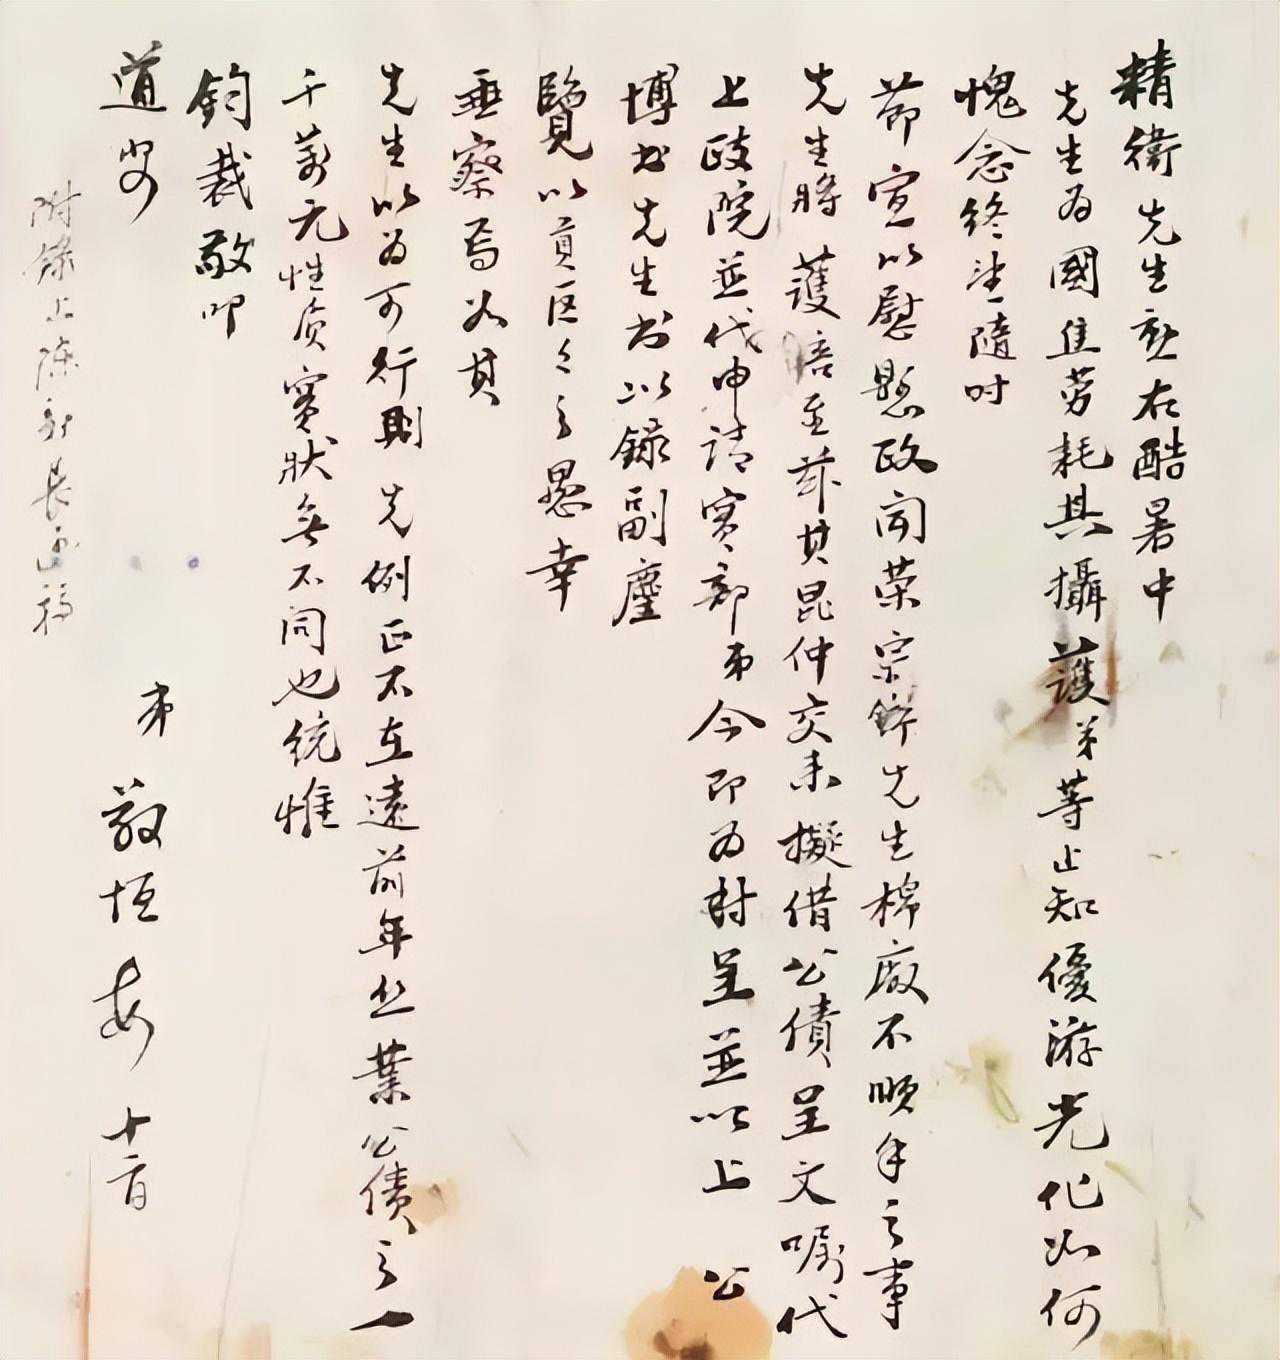 精衛先生勛右酷暑中
先生為國焦勞耗其攝護弟等止知優游光化如何
愧念終望隨時
節宣以慰懸政聞榮宗錦先生棉廠不順手之事
先生將護培至幸其昆仲交來擬借公債呈文囑代
上政院並代申請實部弟今即為封呈並以上公
博書先生書以錄副塵
覽以貢區區之愚幸
垂察焉如其
先生以為可行則先例正不在遠前年丝業公債之一
千萬元性質實狀無不同也統惟
鈞裁敬叩
道安
弟敬恒頓十一日
附錄上陳部長函稿